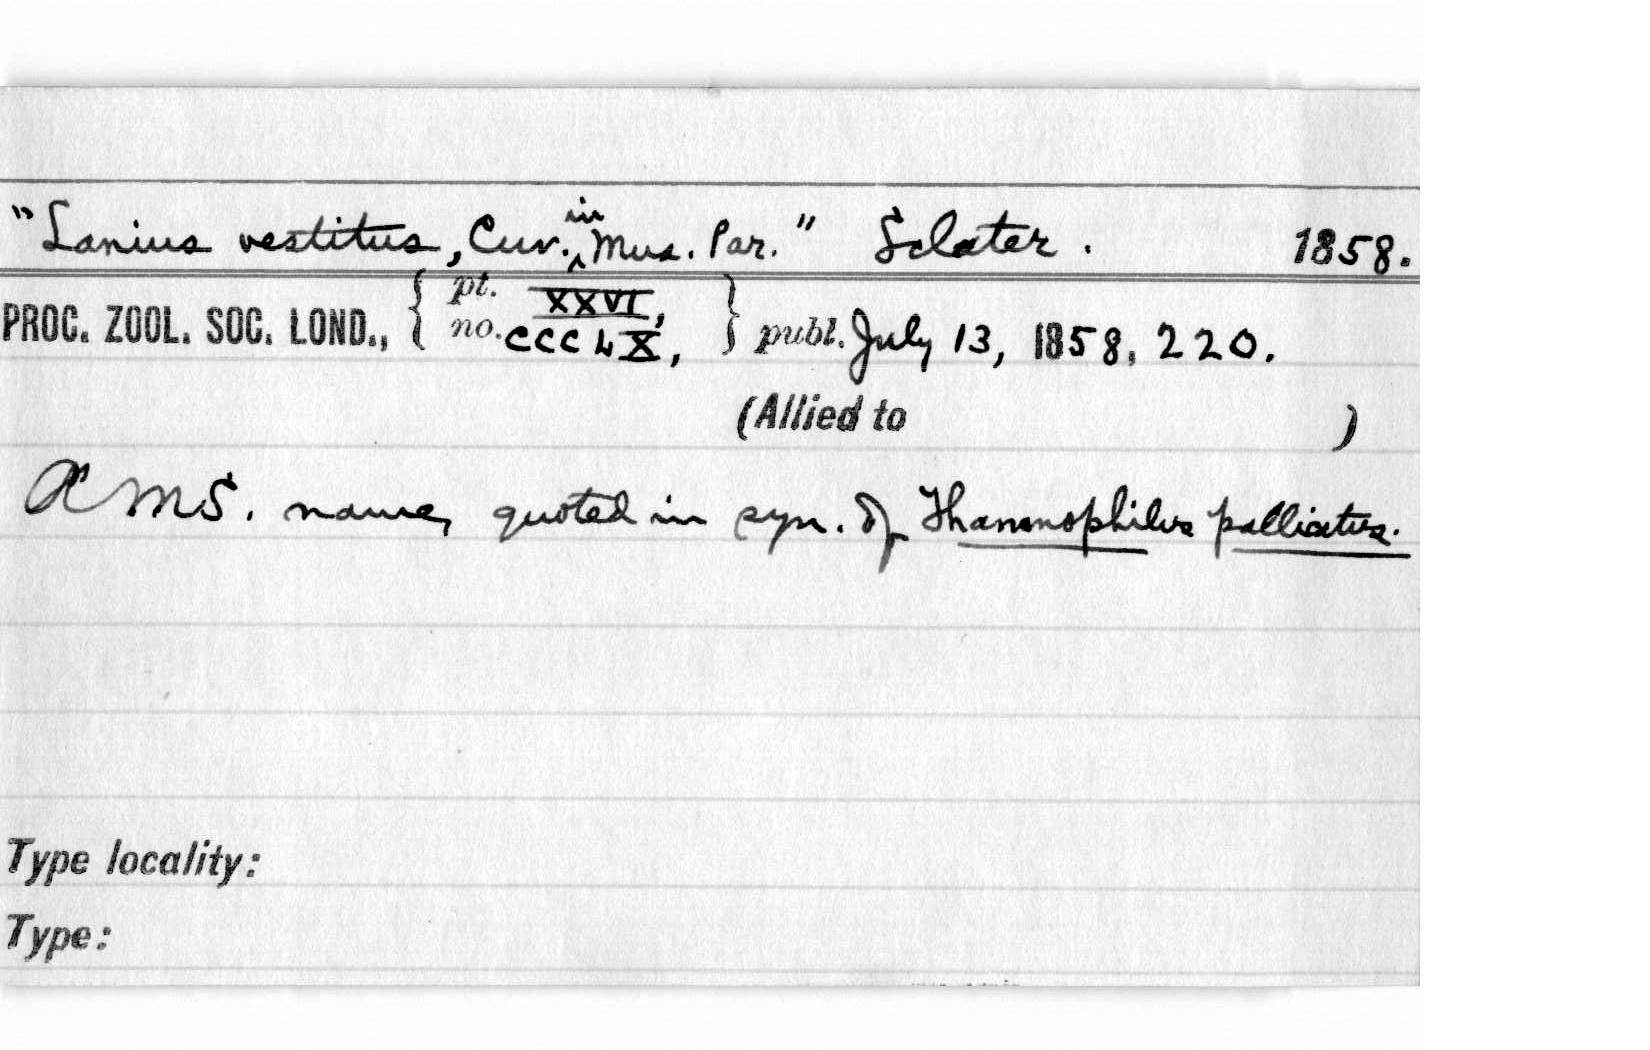 "Lanius vestitus, Cuv. in Mus. Par." Sclater. 1858.
PROC. ZOOL. SOC. LOND., { pt. XXVI, no. CCCLX, } publ. July 13, 1858, 220.
(Allied to )
A MS. name, quoted in syn. of Thamnophilus palliatus.
Type locality:
Type: